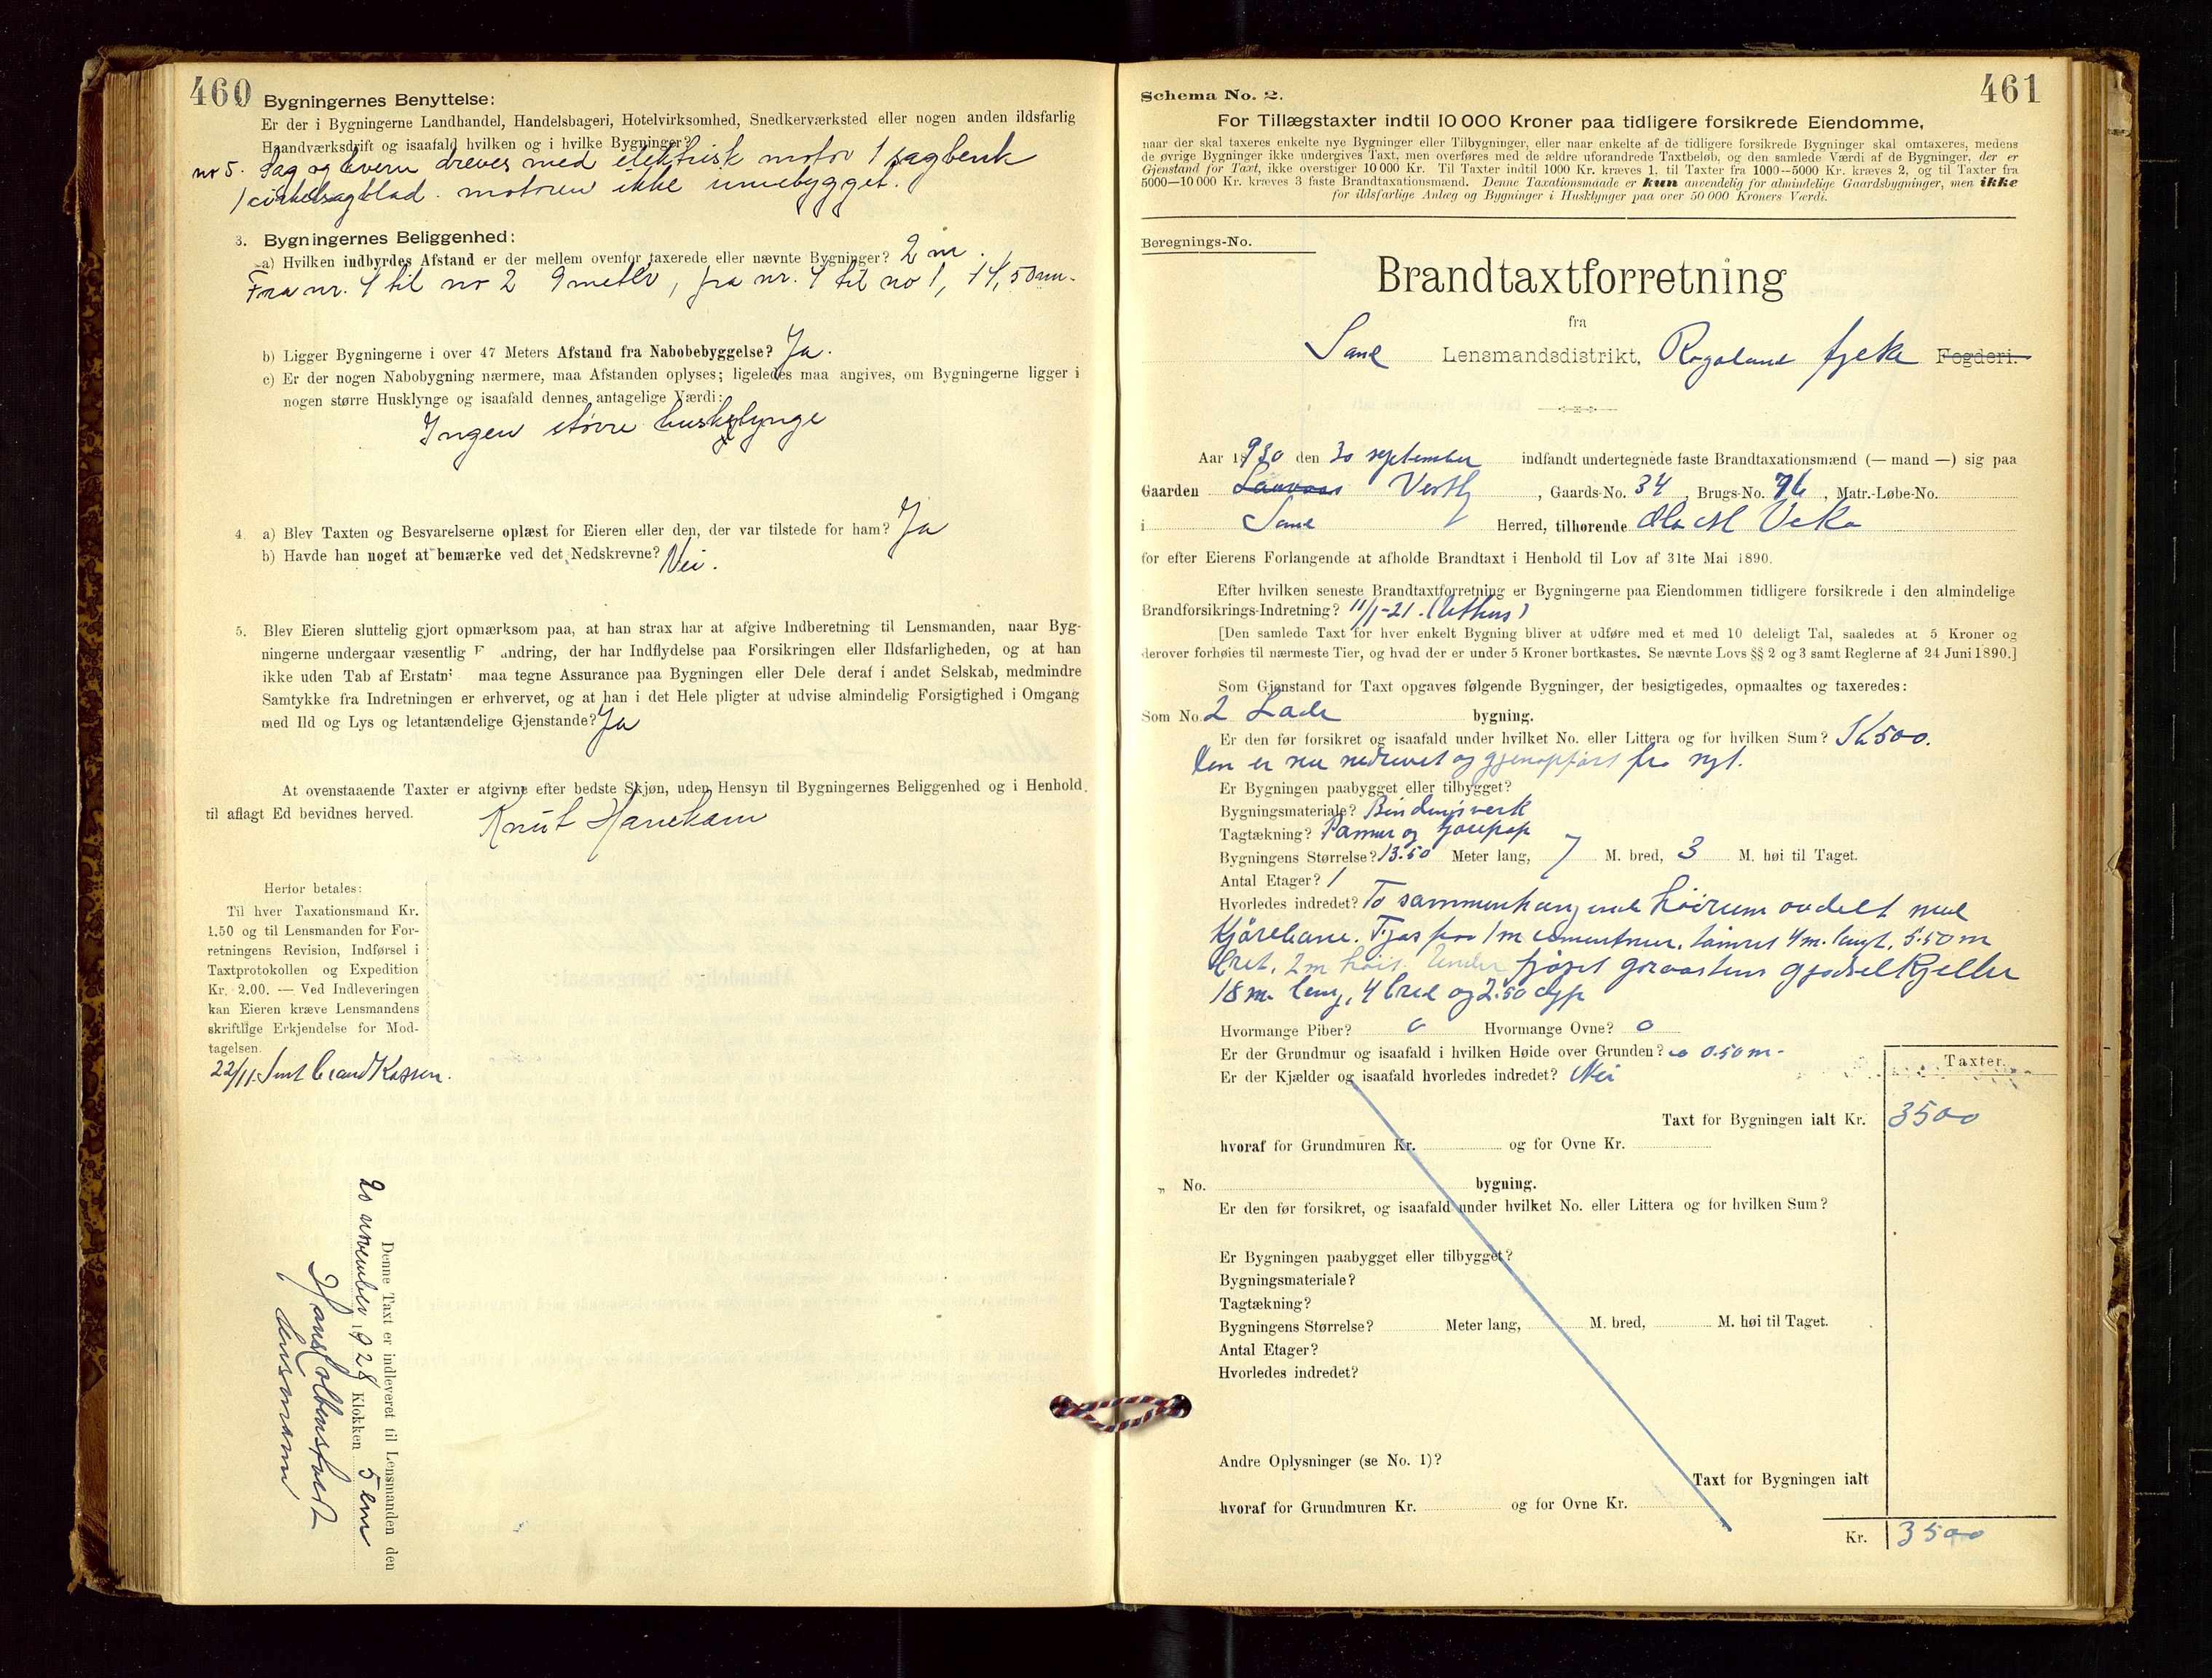 460
Bygningernes Benyttelse:
Er der i Bygningerne Landhandel, Handelsbageri, Hotelvirksomhed, Snedkerværksted eller nogen anden ildsfarlig
Haandværksdrift og isaafald hvilken og i hvilke Bygninger?
nr 5. Sag og kvern dreves med elektrisk motor 1 sagbenk
1 cirkelsagblad. motoren ikke innebygget.
3. Bygningernes Beliggenhed:
a) Hvilken indbyrdes Afstand er der mellem ovenfor taxerede eller nævnte Bygninger? 2 m.
Fra nr. 4 til no 2 9 meter, fra nr. 4 til no 1, 14,50 m.
b) Ligger Bygningerne i over 47 Meters Afstand fra Nabobebyggelse? Ja.
c) Er der nogen Nabobygning nærmere, maa Afstanden oplyses; ligeledes maa angives, om Bygningerne ligger i
nogen større Husklynge og isaafald dennes antagelige Værdi:
Ingen større husklynge
4. a) Blev Taxten og Besvarelserne oplæst for Eieren eller den, der var tilstede for ham? Ja
b) Havde han noget at bemærke ved det Nedskrevne? Nei.
5. Blev Eieren sluttelig gjort opmærksom paa, at han strax har at afgive Indberetning til Lensmanden, naar Byg-
ningerne undergaar væsentlig F andring, der har Indflydelse paa Forsikringen eller Ildsfarligheden, og at han
ikke uden Tab af Erstatn maa tegne Assurance paa Bygningen eller Dele deraf i andet Selskab, medmindre
Samtykke fra Indretningen er erhvervet, og at han i det Hele pligter at udvise almindelig Forsigtighed i Omgang
med Ild og Lys og letantændelige Gjenstande? Ja
At ovenstaaende Taxter er afgivne efter bedste Skjøn, uden Hensyn til Bygningernes Beliggenhed og i Henhold
til aflagt Ed bevidnes herved. Knut Hanekam
Herfor betales:
Til hver Taxationsmand Kr.
1.50 og til Lensmanden for For-
retningens Revision, Indførsel i
Taxtprotokollen og Expedition
Kr. 2.00. — Ved Indleveringen
kan Eieren kræve Lensmandens
skriftlige Erkjendelse for Mod-
tagelsen.
22/11. Sent brandkassen.
Denne Taxt er indleveret til Lensmanden den
20 november 1928 Klokken 5 em
Hans
lensmann
461
Schema No. 2.
For Tillægstaxter indtil 10 000 Kroner paa tidligere forsikrede Eiendomme,
naar der skal taxeres enkelte nye Bygninger eller Tilbygninger, eller naar enkelte af de tidligere forsikrede Bygninger skal omtaxeres, medens
de øvrige Bygninger ikke undergives Taxt, men overføres med de ældre uforandrede Taxtbeløb, og den samlede Værdi af de Bygninger, der er
Gjenstand for Taxt, ikke overstiger 10 000 Kr. Til Taxter indtil 1000 Kr. kræves 1, til Taxter fra 1000—5000 Kr. kræves 2, og til Taxter fra
5000—10 000 Kr. kræves 3 faste Brandtaxationsmænd. Denne Taxationsmaade er kun anvendelig for almindelige Gaardsbygninger, men ikke
for ildsfarlige Anlæg og Bygninger i Husklynger paa over 50 000 Kroners Værdi.
Beregnings-No.
Brandtaxtforretning
fra
Sand Lensmandsdistrikt, Rogaland fylke Fogderi.
Aar 1930 den 30 september indfandt undertegnede faste Brandtaxationsmænd (— mand —) sig paa
Gaarden , Gaards-No. 34, Brugs-No. 76, Matr.-Løbe-No.
i Sand Herred, tilhørende
for efter Eierens Forlangende at afholde Brandtaxt i Henhold til Lov af 31te Mai 1890.
Efter hvilken seneste Brandtaxtforretning er Bygningerne paa Eiendommen tidligere forsikrede i den almindelige
Brandforsikrings-Indretning? 11/1-21. (Uthus)
[Den samlede Taxt for hver enkelt Bygning bliver at udføre med et med 10 deleligt Tal, saaledes at 5 Kroner og
derover forhøies til nærmeste Tier, og hvad der er under 5 Kroner bortkastes. Se nævnte Lovs §§ 2 og 3 samt Reglerne af 24 Juni 1890.]
Som Gjenstand for Taxt opgaves følgende Bygninger, der besigtigedes, opmaaltes og taxeredes:
Som No. 2 Lade bygning.
Er den før forsikret og isaafald under hvilket No. eller Littera og for hvilken Sum? K 500.
Den er nu nedrevet og gjenopført fra nyt.
Er Bygningen paabygget eller tilbygget?
Bygningsmateriale? Bindingsverk
Tagtækning? Panner og tjærepap
Bygningens Størrelse? 13.50 Meter lang, 7 M. bred, 3 M. høi til Taget.
Antal Etager? 1
Hvorledes indredet? To sammenhængende høirum avdelt med
kjørebane. Fjøs paa 1m cementmur, tømret 4 m. langt, 5.50 m
bret, 2 m høit. Under fjøset graastens gjødselkjeller
18 m. lang, 4 bred og 2.50 dyp
Hvormange Piber? 0 Hvormange Ovne? 0
Er der Grundmur og isaafald i hvilken Høide over Grunden? 0.50 m.
Er der Kjælder og isaafald hvorledes indredet? Nei
Taxter.
Taxt for Bygningen ialt Kr. 3500
hvoraf for Grundmuren Kr. og for Ovne Kr.
„ No. bygning.
Er den før forsikret, og isaafald under hvilket No. eller Littera og for hvilken Sum?
Er Bygningen paabygget eller tilbygget?
Bygningsmateriale?
Tagtækning?
Bygningens Størrelse? Meter lang, M. bred, M. høi til Taget.
Antal Etager?
Hvorledes indredet?
Andre Oplysninger (se No. 1)?
Taxt for Bygningen ialt
hvoraf for Grundmuren Kr. og for Ovne Kr.
Kr. 3500